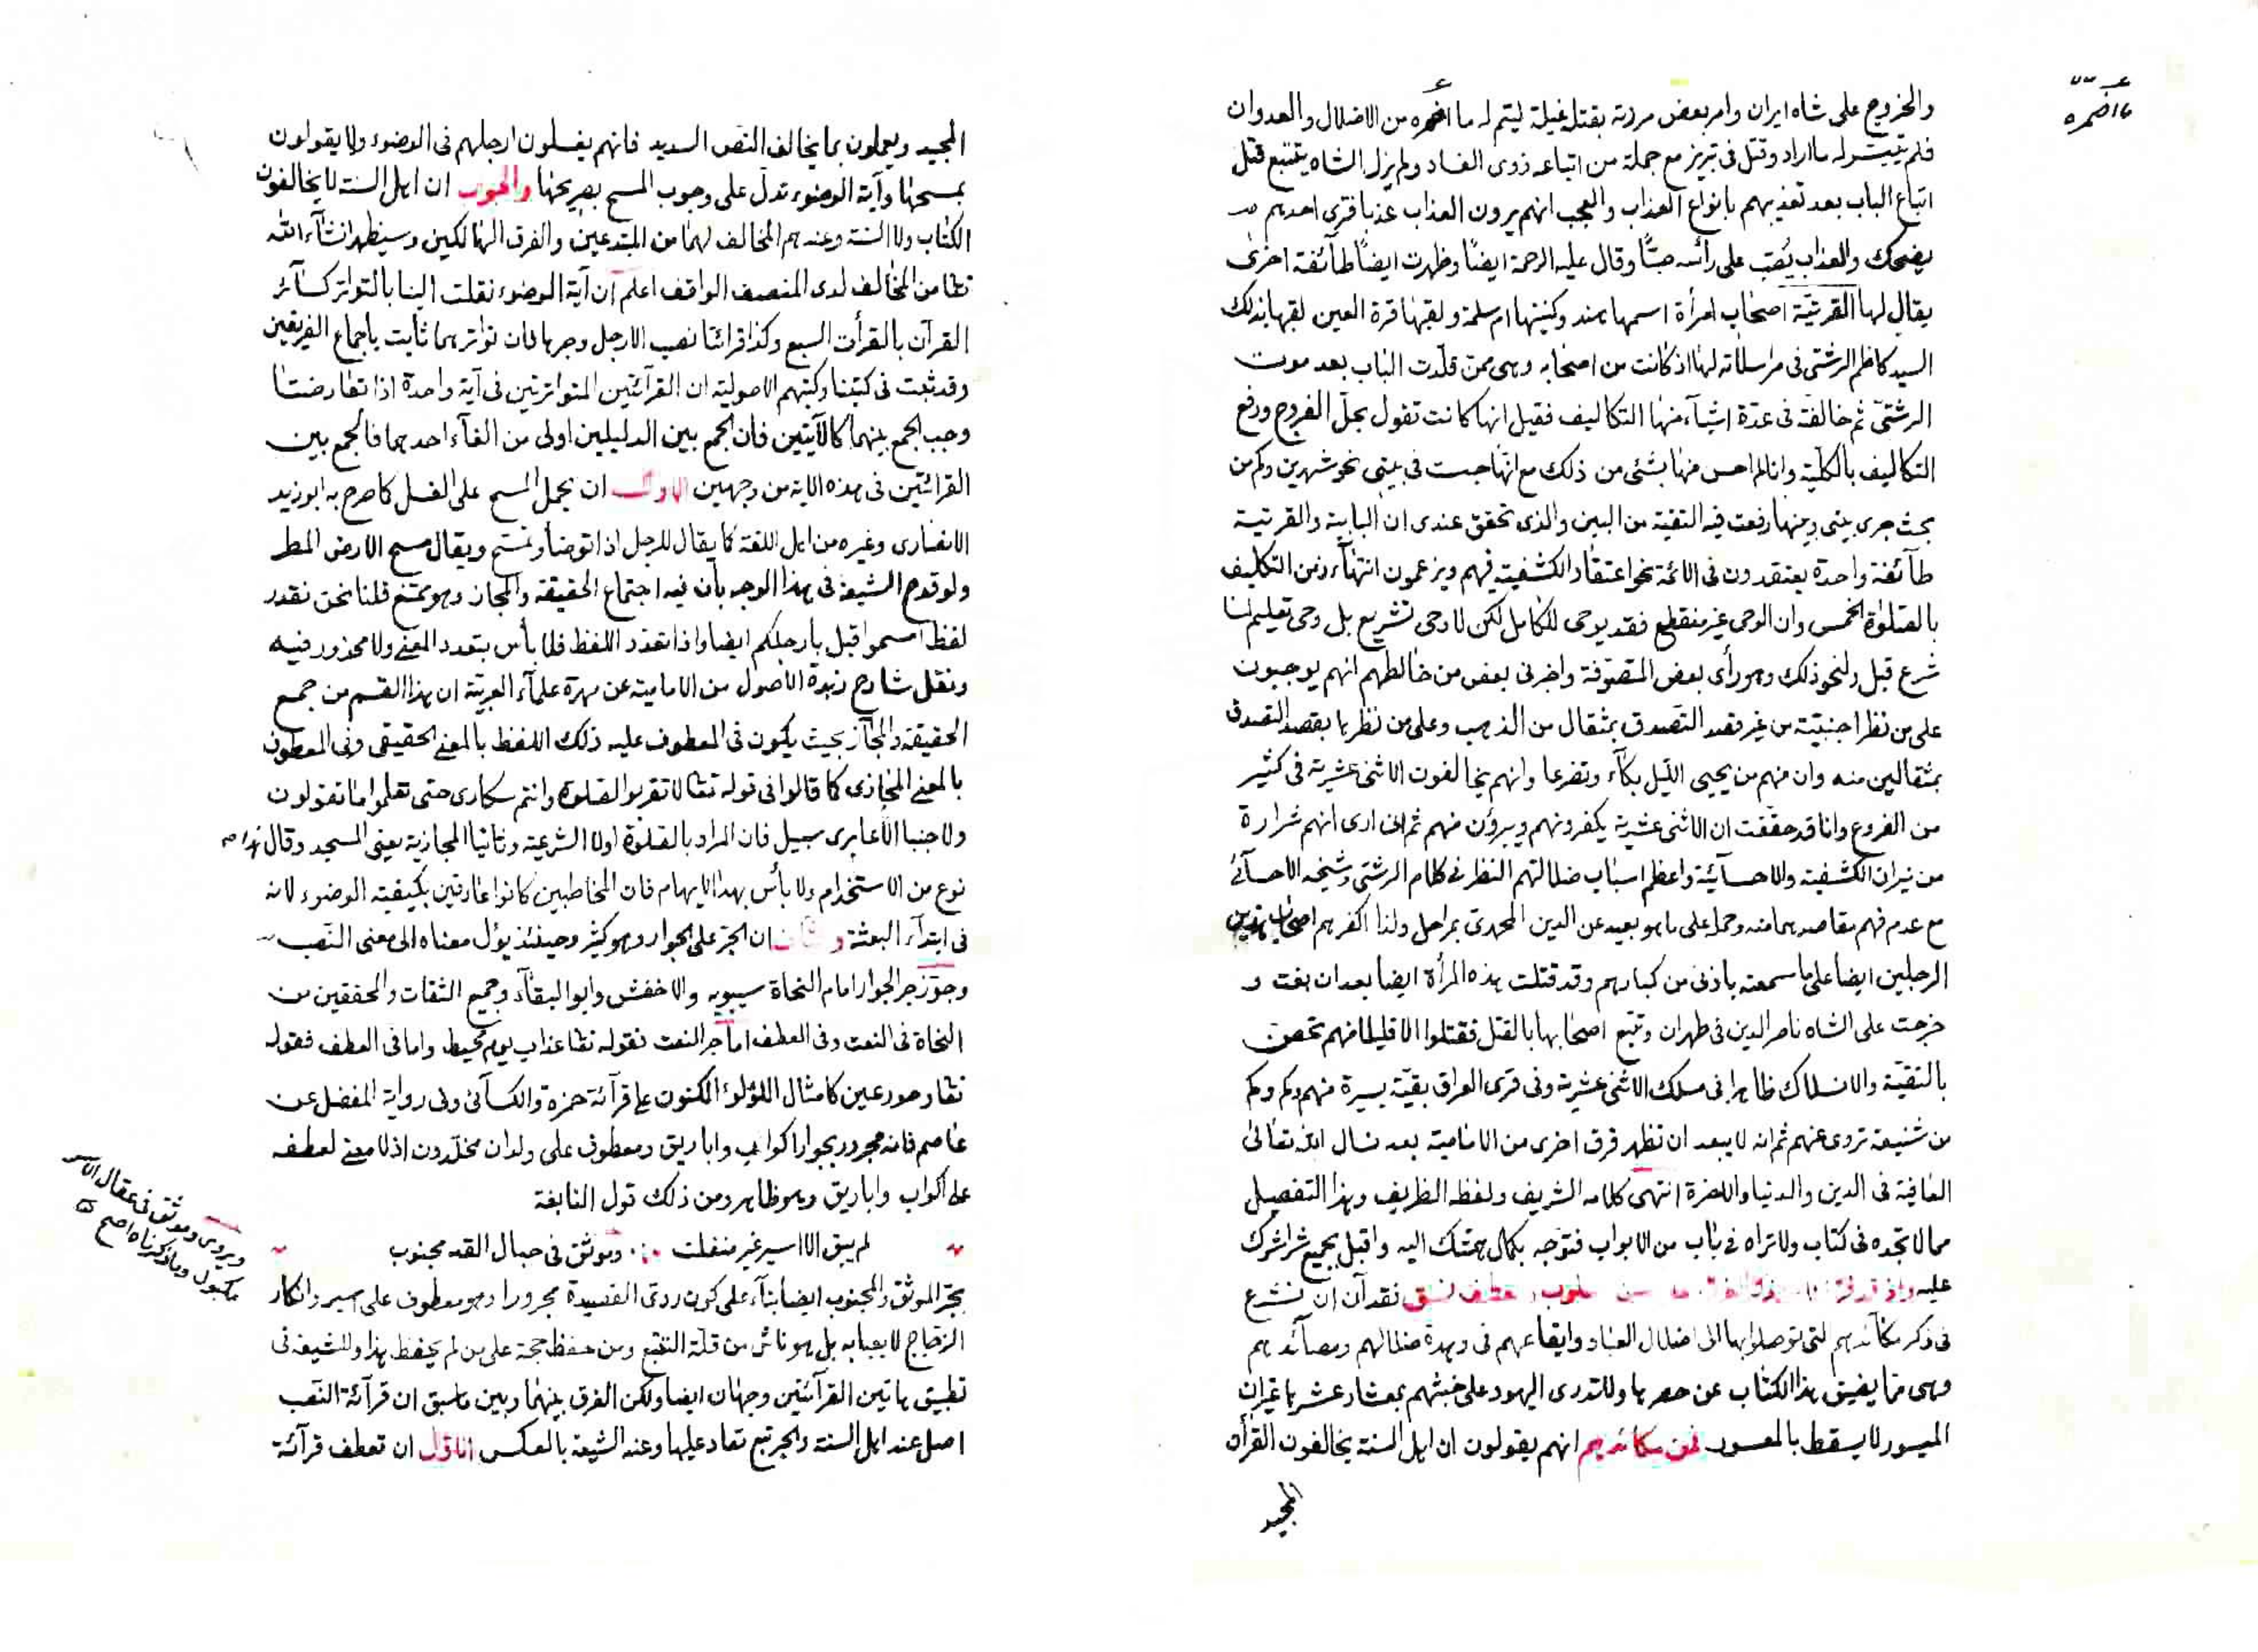 والخروج على شاه ايران وامر بعض مردته بقتله غيلة ليتم له ما اضمره من الاضلال والعدوان
ما اضمره
فلم يتيسر له ما اراد وقتل فى تبريز مع جملة من اتباعه ذوى الفساد ولم يزل الشاه يتتبع قتل
اتباع الباب بعد تعذيبهم بانواع العذاب والعجب انهم يرون العذاب عذبا فترى احدهم
يضحك والعذاب يُصَبّ على رأسه صبًّا وقال عليه الرحمة ايضًا وظهرت ايضًا طآئفة اخرى
يقال لها القرتيّة اصحاب امرأة اسمها هند وكنيتها ام سلمة ولقبها قرة العين لقبها بذلك
السيد كاظم الرشتى فى مراسلاته لها اذ كانت من اصحابه وهى ممن قلّدت الباب بعد موت
الرشتىّ ثم خالفته فى عدّة اشيآء منها التكاليف فقيل انها كانت تقول بحلّ الفروج ورفع
التكاليف بالكلّية وانا لم احس منها بشئ من ذلك مع انها حبست فى بيتى نحو شهرين وكم من
بحث جرى بينى وبينها رفعت فيه التقية من البين والذى تحقق عندى ان البابية والقرتية
طآئفة واحدة يعتقدون فى الائمة نحو اعتقاد الكشفية فيهم ويزعمون انتهآء زمن التكليف
بالصلوة الخمس وان الوحى غير منقطع فقد يوحى للكامل لكن لا وحى تشريع بل وحى تعليم لما
شرع قبل ولنحو ذلك وهو رأى بعض المتصوّفة واخبرنى بعض من خالطهم انهم يوجبون
على من نظر اجنبيّة من غير قصد التصدق بمثقال من الذهب وعلى من نظرها بقصد التصدق
بمثقالين منه وان منهم من يحيى الليل بكآء وتضرعا وانهم يخالفون الاثنى عشرية فى كثير
من الفروع وانا قد حققت ان الاثنى عشرية يكفرونهم ويبرؤن منهم ثم انى ارى انهم شرارة
من نيران الكشفية والاحسآئيّة واعظم اسباب ضلالتهم النظر فى كلام الرشتى وشيخه الاحسآئى
مع عدم فهم مقاصدهما منه وحمله على ما هو بعيد عن الدين المحمدى بمراحل ولذا اكفرهم اصحاب هذين
الرجلين ايضا على ما سمعته باذنى من كبارهم وقد قتلت هذه المرأة ايضا بعد ان بغت و
خرجت على الشاه ناصر الدين فى طهران وتتبع اصحابها بالقتل فقتلوا الا قليلا منهم تحصن
بالتقيّة والانسلاك ظاهرا فى مسلك الاثنى عشرية وفى قرى العراق بقيّة يسيرة منهم وكم وكم
من شنيعة تروى عنهم ثم انه لا يبعد ان تظهر فرق اخرى من الامامية بعد نسال الله تعالى
العافية فى الدين والدنيا والاخرة انتهى كلامه الشريف ولفظه الظريف وهذا التفصيل
مما لا تجده فى كتاب ولا تراه فى باب من الابواب فتوجه بكمال همتك اليه واقبل بجميع شراشرك
عليه نقد آن ان نشرع
فى ذكر مكآئدهم التى توصلوا بها الى اضلال العباد وايقاعهم فى وهدة ضلالهم ومصآئدهم
وهى مما يضيق هذا الكتاب عن حصرها ولا تدرى اليهود على خبثهم بمعشار عشرها غير ان
الميسور لا يسقط بالمعسور فمن مكائدهم انهم يقولون ان اهل السنة يخالفون القرأن
المجيد
المجيد ويعملون بما يخالف النص السديد فانهم يغسلون ارجلهم فى الوضوء ولا يقولون
بمسحها وآية الوضوء تدلّ على وجوب المسح بصريحها والجواب ان اهل السنة لا يخالفون
الكتاب ولا السنة وعندهم المخالف لهما من المبتدعين والفرق الهالكين وسيظهر انشآء الله
تعا من المخالف لدى المنصف الواقف اعلم ان آية الوضوء نقلت الينا بالتواتر كسآئر
القرآن بالقرأت السبع وكذا قرائتا نصب الارجل وجرها فان تواترهما ثابت باجماع الفريقين
وقد ثبت فى كتبنا وكتبهم الاصولية ان القرآئتين المتواترتين فى آية واحدة اذا تعارضتا
وجب الجمع بينهما كالآيتين فان الجمع بين الدليلين اولى من الغآء احدهما فالجمع بين
القرائتين فى هذه الاية من وجهين الاول ان يحمل المسح على الغسل كما صرح به ابو زيد
الانصارى وغيره من اهل اللغة كما يقال للرجل اذا توضأ وتمسّح ويقال مسح الارض المطر
ولو قدح الشيعة فى هذا الوجه بان فيه اجتماع الحقيقة والمجاز وهو ممتنع قلنا نحن نقدر
لفظ امسحوا قبل بارجلكم ايضا واذا تعدد اللفظ فلا بأس بتعدد المعنى ولا محذور فيه
ونقل شارح زبدة الاصول من الامامية عن مهرة علمآء العربيّة ان هذا القسم من جمع
الحقيقة والمجاز بحيث يكون فى المعطوف عليه ذلك اللفظ بالمعنى الحقيقى وفى المعطوف
بالمعنى المجازى كما قالوا فى قوله تعا لا تقربوا الصلوة وانتم سكارى حتى تعلموا ما تقولون
ولا جنبا الا عابرى سبيل فان المراد بالصلوة اولا الشرعية وثانيا المجازية يعنى المسجد وقال هذا
نوع من الاستخدام ولا بأس بهذا الابهام فان المخاطبين كانوا عارفين بكيفية الوضوء لانه
فى ابتدآء البعثة ان الجر على الجوار وهو كثير وحينئذ يؤل معناه الى معنى النصب
وجوّز جر الجوار امام النحاة سيبويه والاخفش وابو البقآء وجميع الثقات والمحققين من
النحاة فى النعت وفى العطف اما جر النعت فقوله تعا عذاب يوم محيط واما فى العطف فقوله
تعا وحور عين كامثال اللؤلؤ المكنون على قرآئة حمزة والكسآئى وفى رواية المفضل عن
عاصم فانه مجرور بجوار اكواب واباريق ومعطوف على ولدان مخلّدون اذ لا معنى لعطفه
على اكواب واباريق وهو ظاهر ومن ذلك قول النابغة
لم يبق الا اسير غير منفلت ∴ وموثق فى حبال القد مجنوب
ويروى وموثق فى عقال الاسر
مكبول وما ذكرناه اصح
بجر الموثق والمجنوب ايضا بنآء على كون روى القصيدة مجرورا وهو معطوف على اسير وانكار
الزجاج لا يعبأ به بل هو ناش من قلّة التتبع ومن حفظ حجة على من لم يحفظ هذا وللشيعة فى
تطبيق هاتين القرآئتين وجهان ايضا ولكن الفرق بينهما وبين ما سبق ان قرآئة النصب
اصل عند اهل السنة والجر تبع تعاد عليها وعند الشيعة بالعكس الاول ان تعطف قرآئة